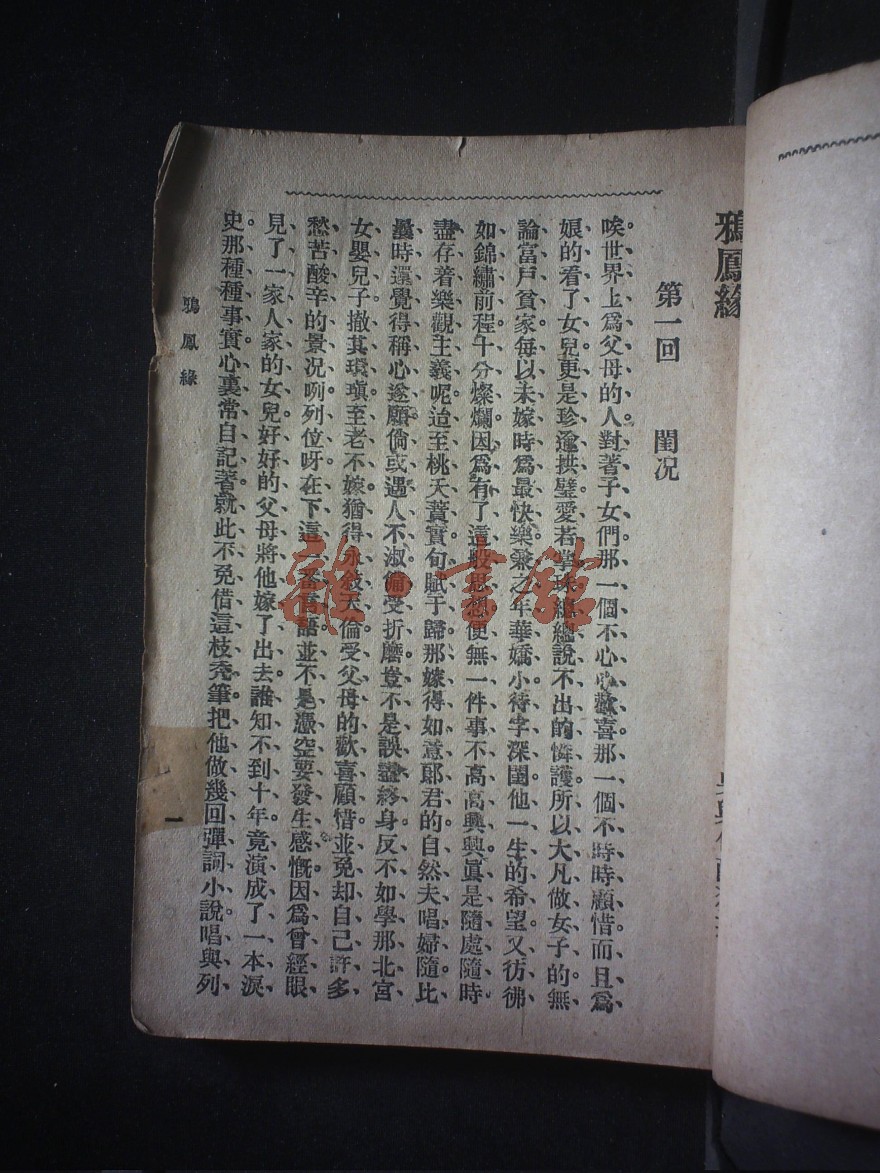 鴉鳳緣
第一回　閨况
唉世界上爲父母的人對著子女們那一個不心心歡喜那一個不時時顧惜而且爲
娘的看了女兒更是珍逾拱璧愛若掌珠總總說不出的憐護所以大凡做女子的無
論富戶貧家每以未嫁時爲最快樂兼之年華嬌小待字深閨他一生的希望又彷彿
如錦繡前程十分燦爛因爲有了這般思想便無一件事不高高興興眞是隨處隨時
盡存着樂觀主義呢迨至桃夭蕡實旬賦于歸那嫁得如意郞君的自然夫唱婦隨比
曩時還覺得稱心遂願倘或遇人不淑備受折磨豈不是誤盡終身反不如學那北宮
女嬰兒子撤其環瑱至老不嫁猶得永敍天倫受父母的歡喜顧惜並免却自己許多
愁苦酸辛的景况咧列位呀在下這一番言語並不是憑空要發生感慨因爲曾經眼
見了一家人家的女兒好好的父母將他嫁了出去誰知不到十年竟演成了一本淚
史那種種事實心裏常自記著就此不免借這枝禿筆把他做幾回彈詞小說唱與列
鴉鳳緣
一
雜書館